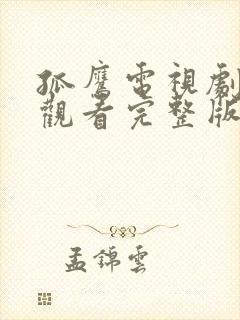 孤鷹電視劇
觀看完整版
孟錦雲